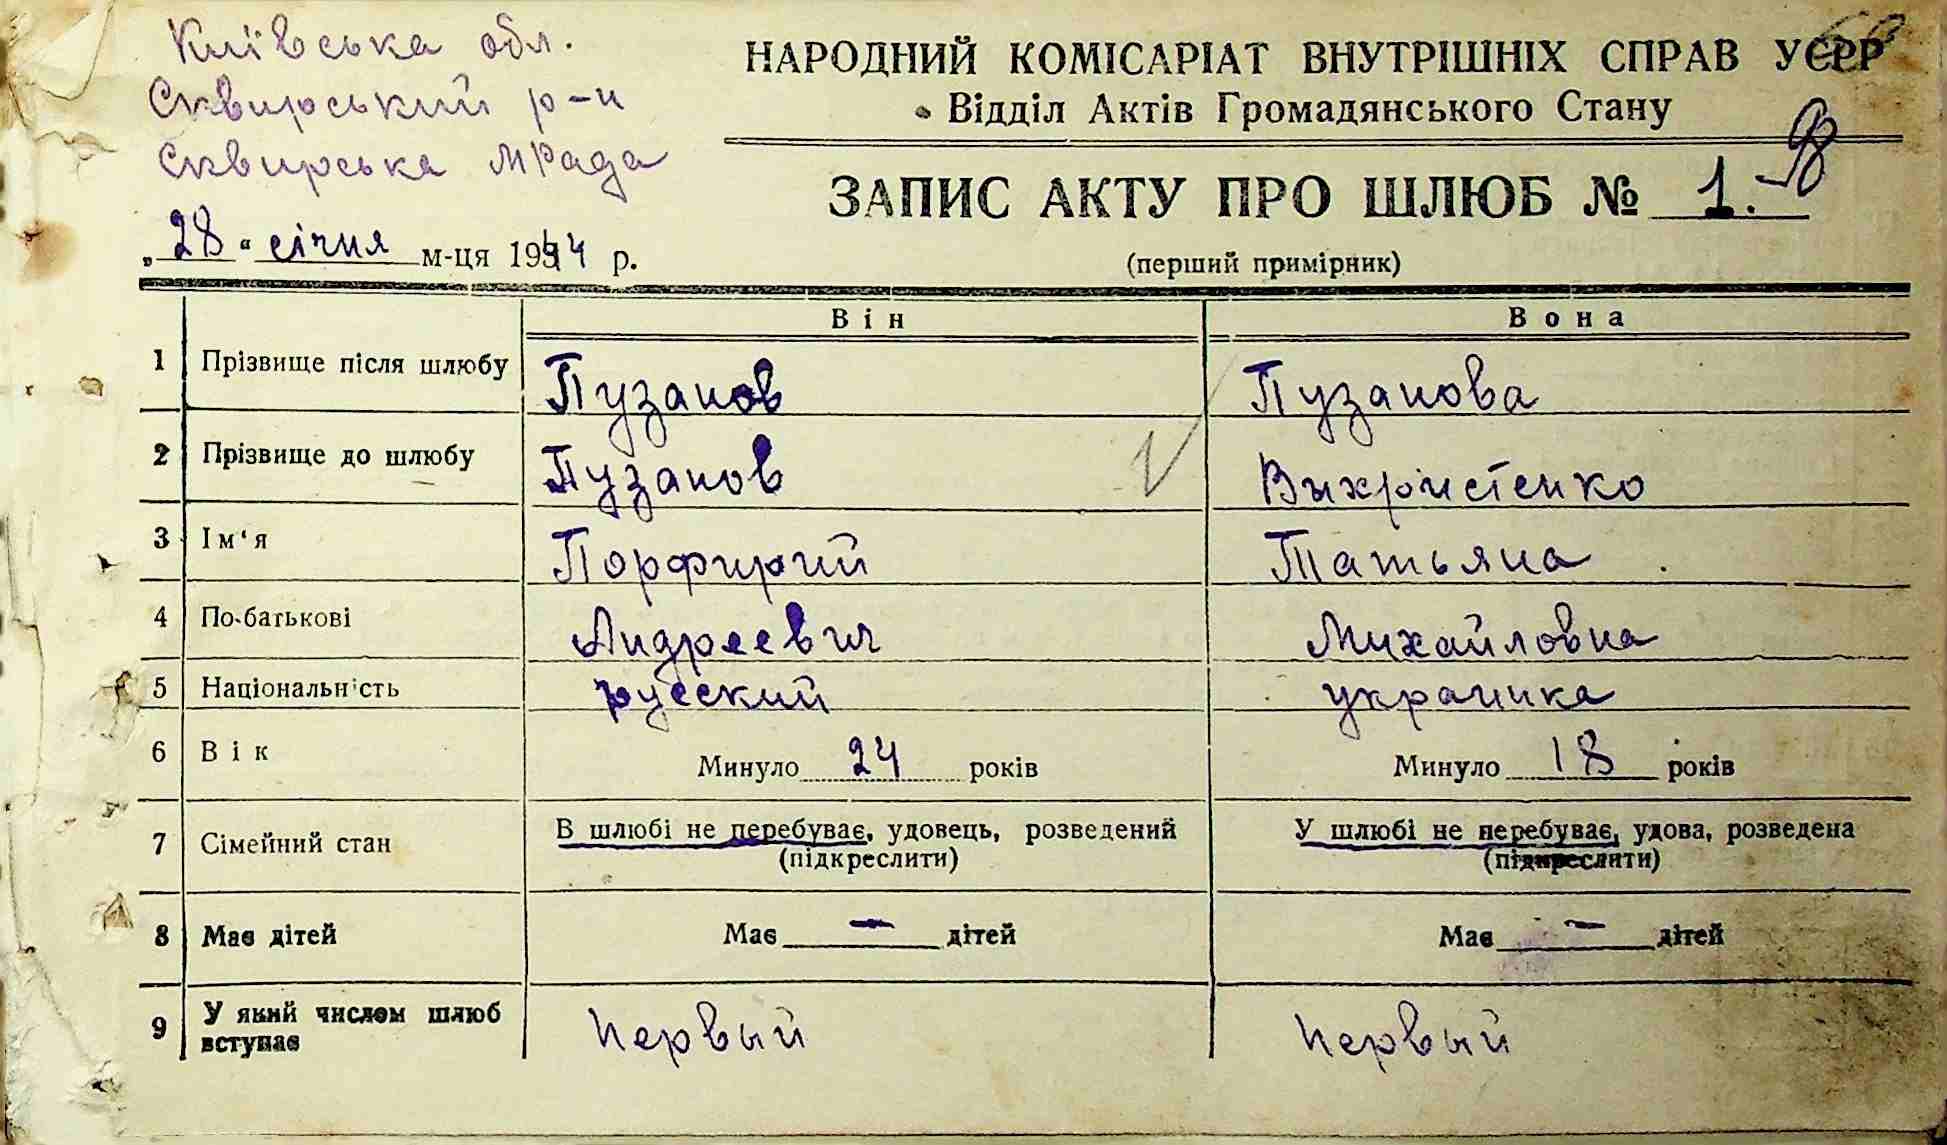 Київська обл.
Сквирський р-н
Сквирська МРада
„28“ січня м-ця 1944 р.
НАРОДНИЙ КОМІСАРІАТ ВНУТРІШНІХ СПРАВ УСРР
Відділ Актів Громадянського Стану
ЗАПИС АКТУ ПРО ШЛЮБ № 1.
(перший примірник)
Він Вона
1 Прізвище після шлюбу Пузанов Пузанова
2 Прізвище до шлюбу Пузанов Выхристенко
3 Ім‘я Порфирий Татьяна
4 По-батькові Андреевич Михайловна
5 Національність русский украинка
6 Вік Минуло 24 років Минуло 18 років
7 Сімейний стан В шлюбі не перебуває, удовець, розведений У шлюбі не перебуває, удова, розведена
(підкреслити) (підкреслити)
8 Має дітей Має — дітей Має — дітей
9 У який числом шлюб вступає Первый Первый